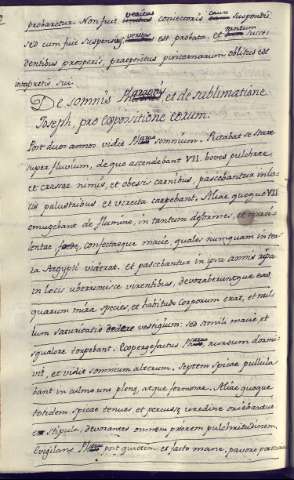 probaretur. Non fuit veritas coniectoris cum suspendi,
sed cum fuit suspensus, verus est probata et tantum. Succe-
dentibus prosperis, praepositus pincernarum oblitus est
interpretis sui.
De somniis Pharaonis et de sublimatione
Joseph, pro expositione eorum.
Post duos annos vidit Pharao somnium. Putabat se stare
super fluvium, de quo ascendebant VII. boves pulchrae,
et crassae nimis, et obesis carnibus, pascebantur in lo-
cis palustribus et virecta carpebant. Aliae quoque VII.
emergebant de flumine, in tantum deformes, et macie
confectaeque macie, quales nunquam in ter-
ra Aegypti viderat, et pascebantur in ipsa amnis ripa
in locis uberioribus virentibus, devoraveruntque eas,
quarum mira species, et habitudo corporum erat, et nul-
lum saturitatis dedere vestigium: sed simili macie et
squalore torpebant. Expergefactus Pharao, rursum dormi-
vit, et vidit somnium alterum. Septem spicae pullula-
bant in culmo uno plenae, atque formosae. Aliae quoque
totidem spicae tenues et percussae uredine oriebantur
stipula, devorantes omnem priorem pulchritudinem.
Evigilans Pharao post quietem, et facto mane, pavore